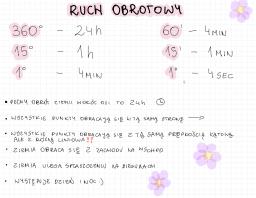 RUCH OBROTOWY
360° - 24h 60' - 4 MIN
15° - 1h 15' - 1 MIN
1° - 4 MIN 1' - 4 SEC
• PEŁNY OBRÓT ZIEMI WOKÓŁ OSI TO 24h
• WSZYSTKIE PUNKTY OBRACAJĄ SIĘ W TĄ SAMĄ STRONĘ →
• WSZYSTKIE PUNKTY OBRACAJĄ SIĘ Z TĄ SAMĄ PRĘDKOŚCIĄ KĄTOWĄ
ALE Z RÓŻNĄ LINIOWĄ !!
• ZIEMIA OBRACA SIĘ Z ZACHODU NA WSCHÓD
• ZIEMIA ULEGA SPŁASZCZENIU NA BIEGUNACH
• WYSTĘPUJE DZIEŃ I NOC :)